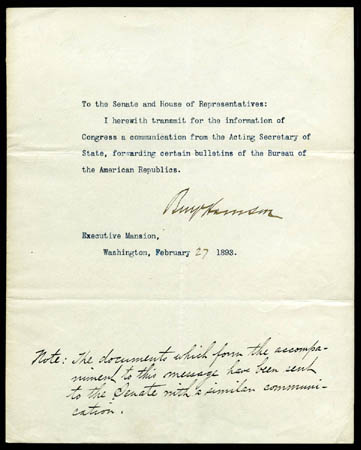 To the Senate and House of Representatives:
I herewith transmit for the information of
Congress a communication from the Acting Secretary of
State, forwarding certain bulletins of the Bureau of
the American Republics.
Benj Harrison
Executive Mansion,
Washington, February 27 1893.
Note: The documents which form the accompa-
niment to this message have been sent
to the Senate with a similar communi-
cation.